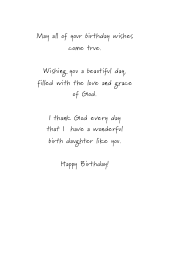 May all of your birthday wishes
come true.
Wishing you a beautiful day,
filled with the love and grace
of God.
I thank God every day
that I have a wonderful
birth daughter like you.
Happy Birthday!